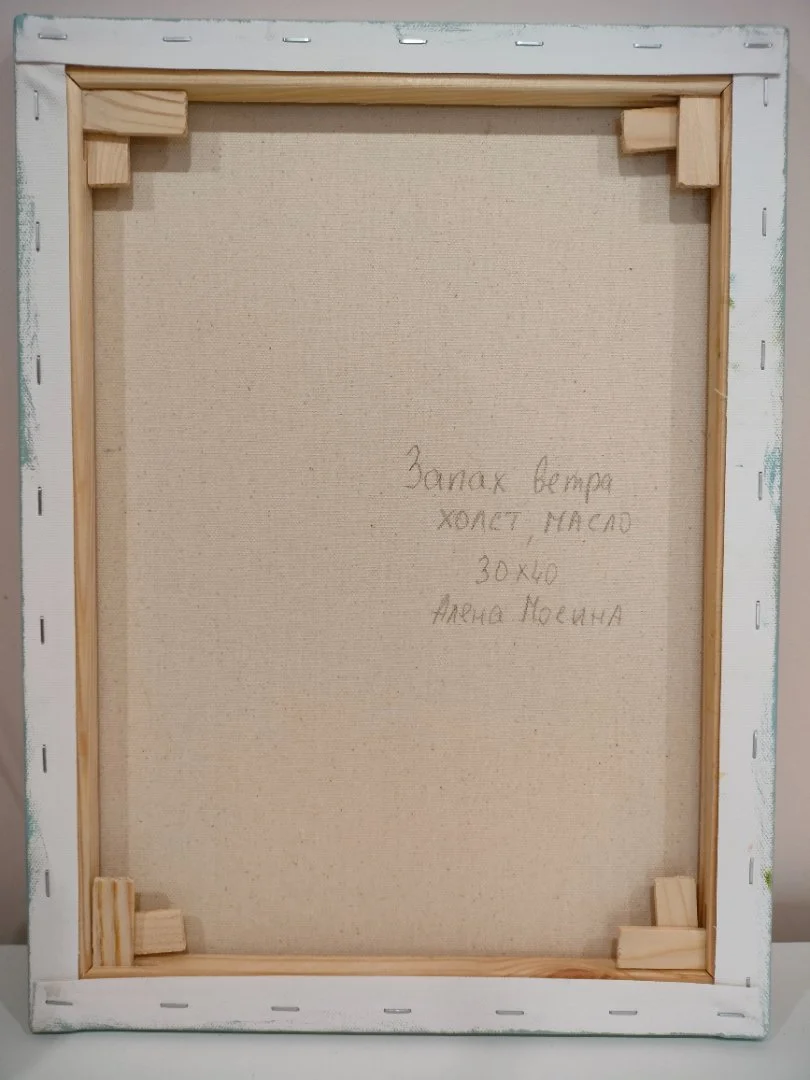 Запах ветра
ХОЛСТ, МАСЛО
30х40
Алена Мосина